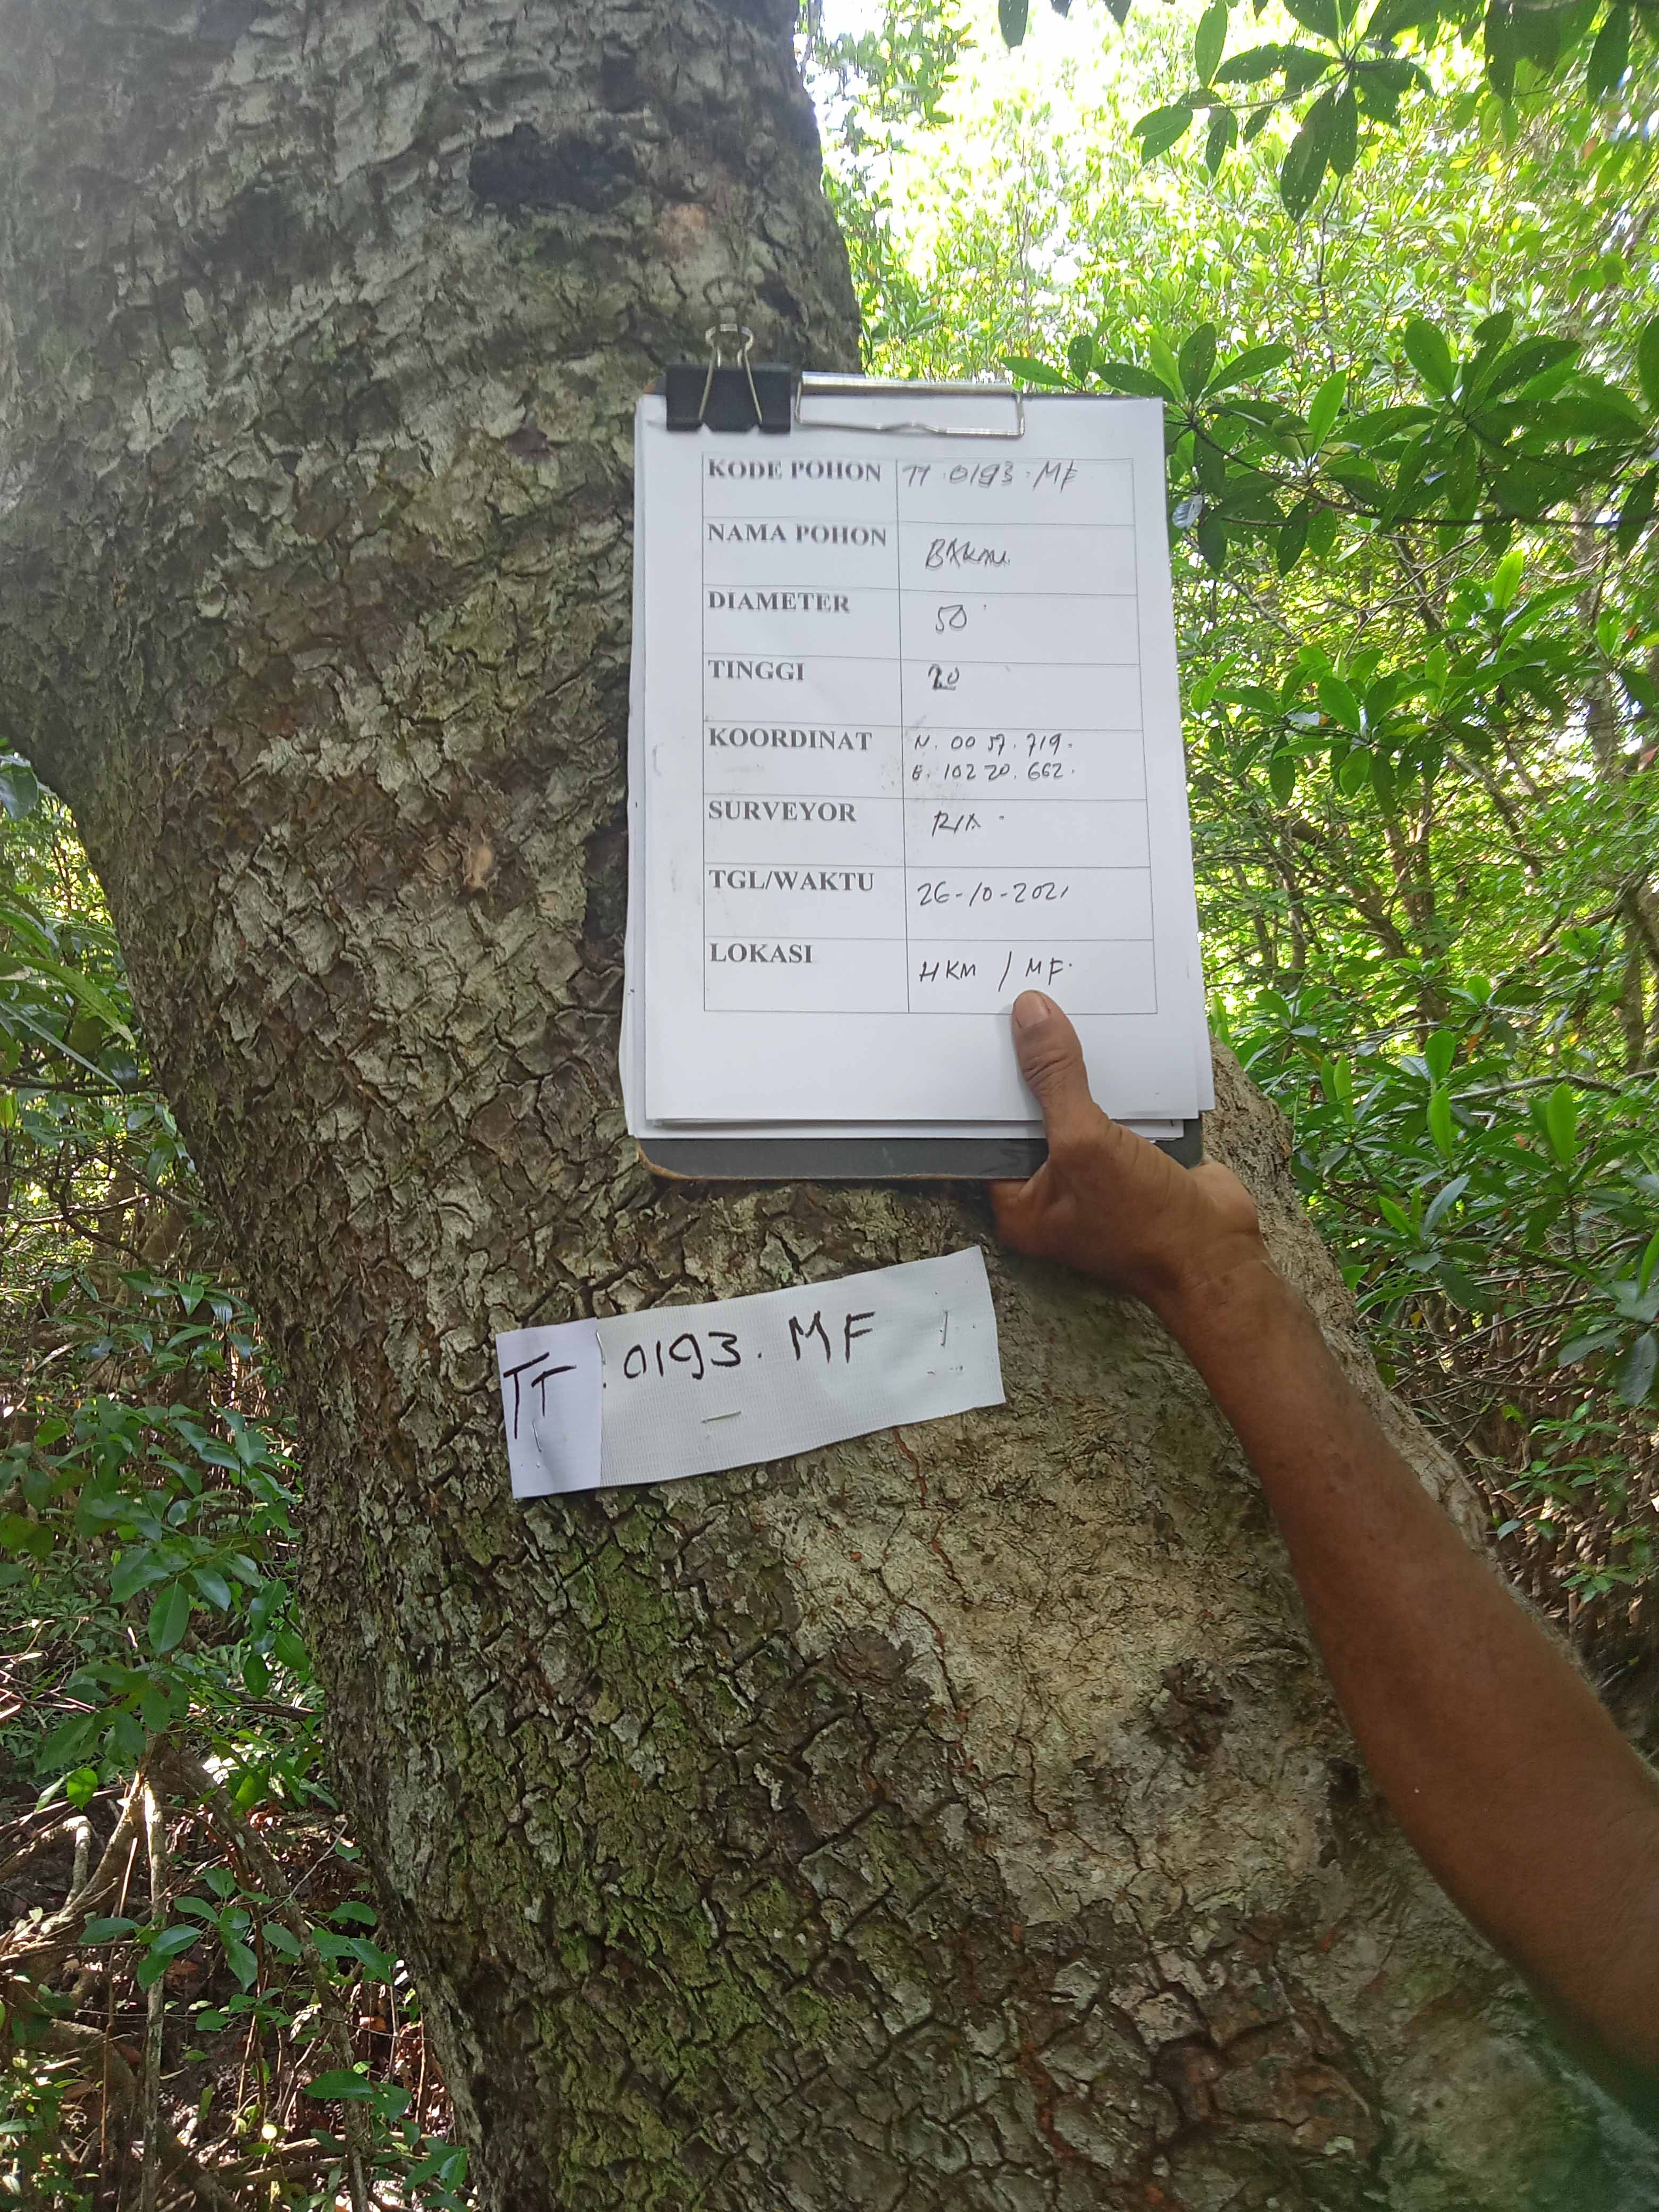 KODE POHON TT.0193.MF
NAMA POHON BAKAU.
DIAMETER 50
TINGGI 20
KOORDINAT N. 00 57. 719.
E. 102 20. 662.
SURVEYOR RIA
TGL/WAKTU 26-10-2021
LOKASI HKM / MF.
TT.0193.MF